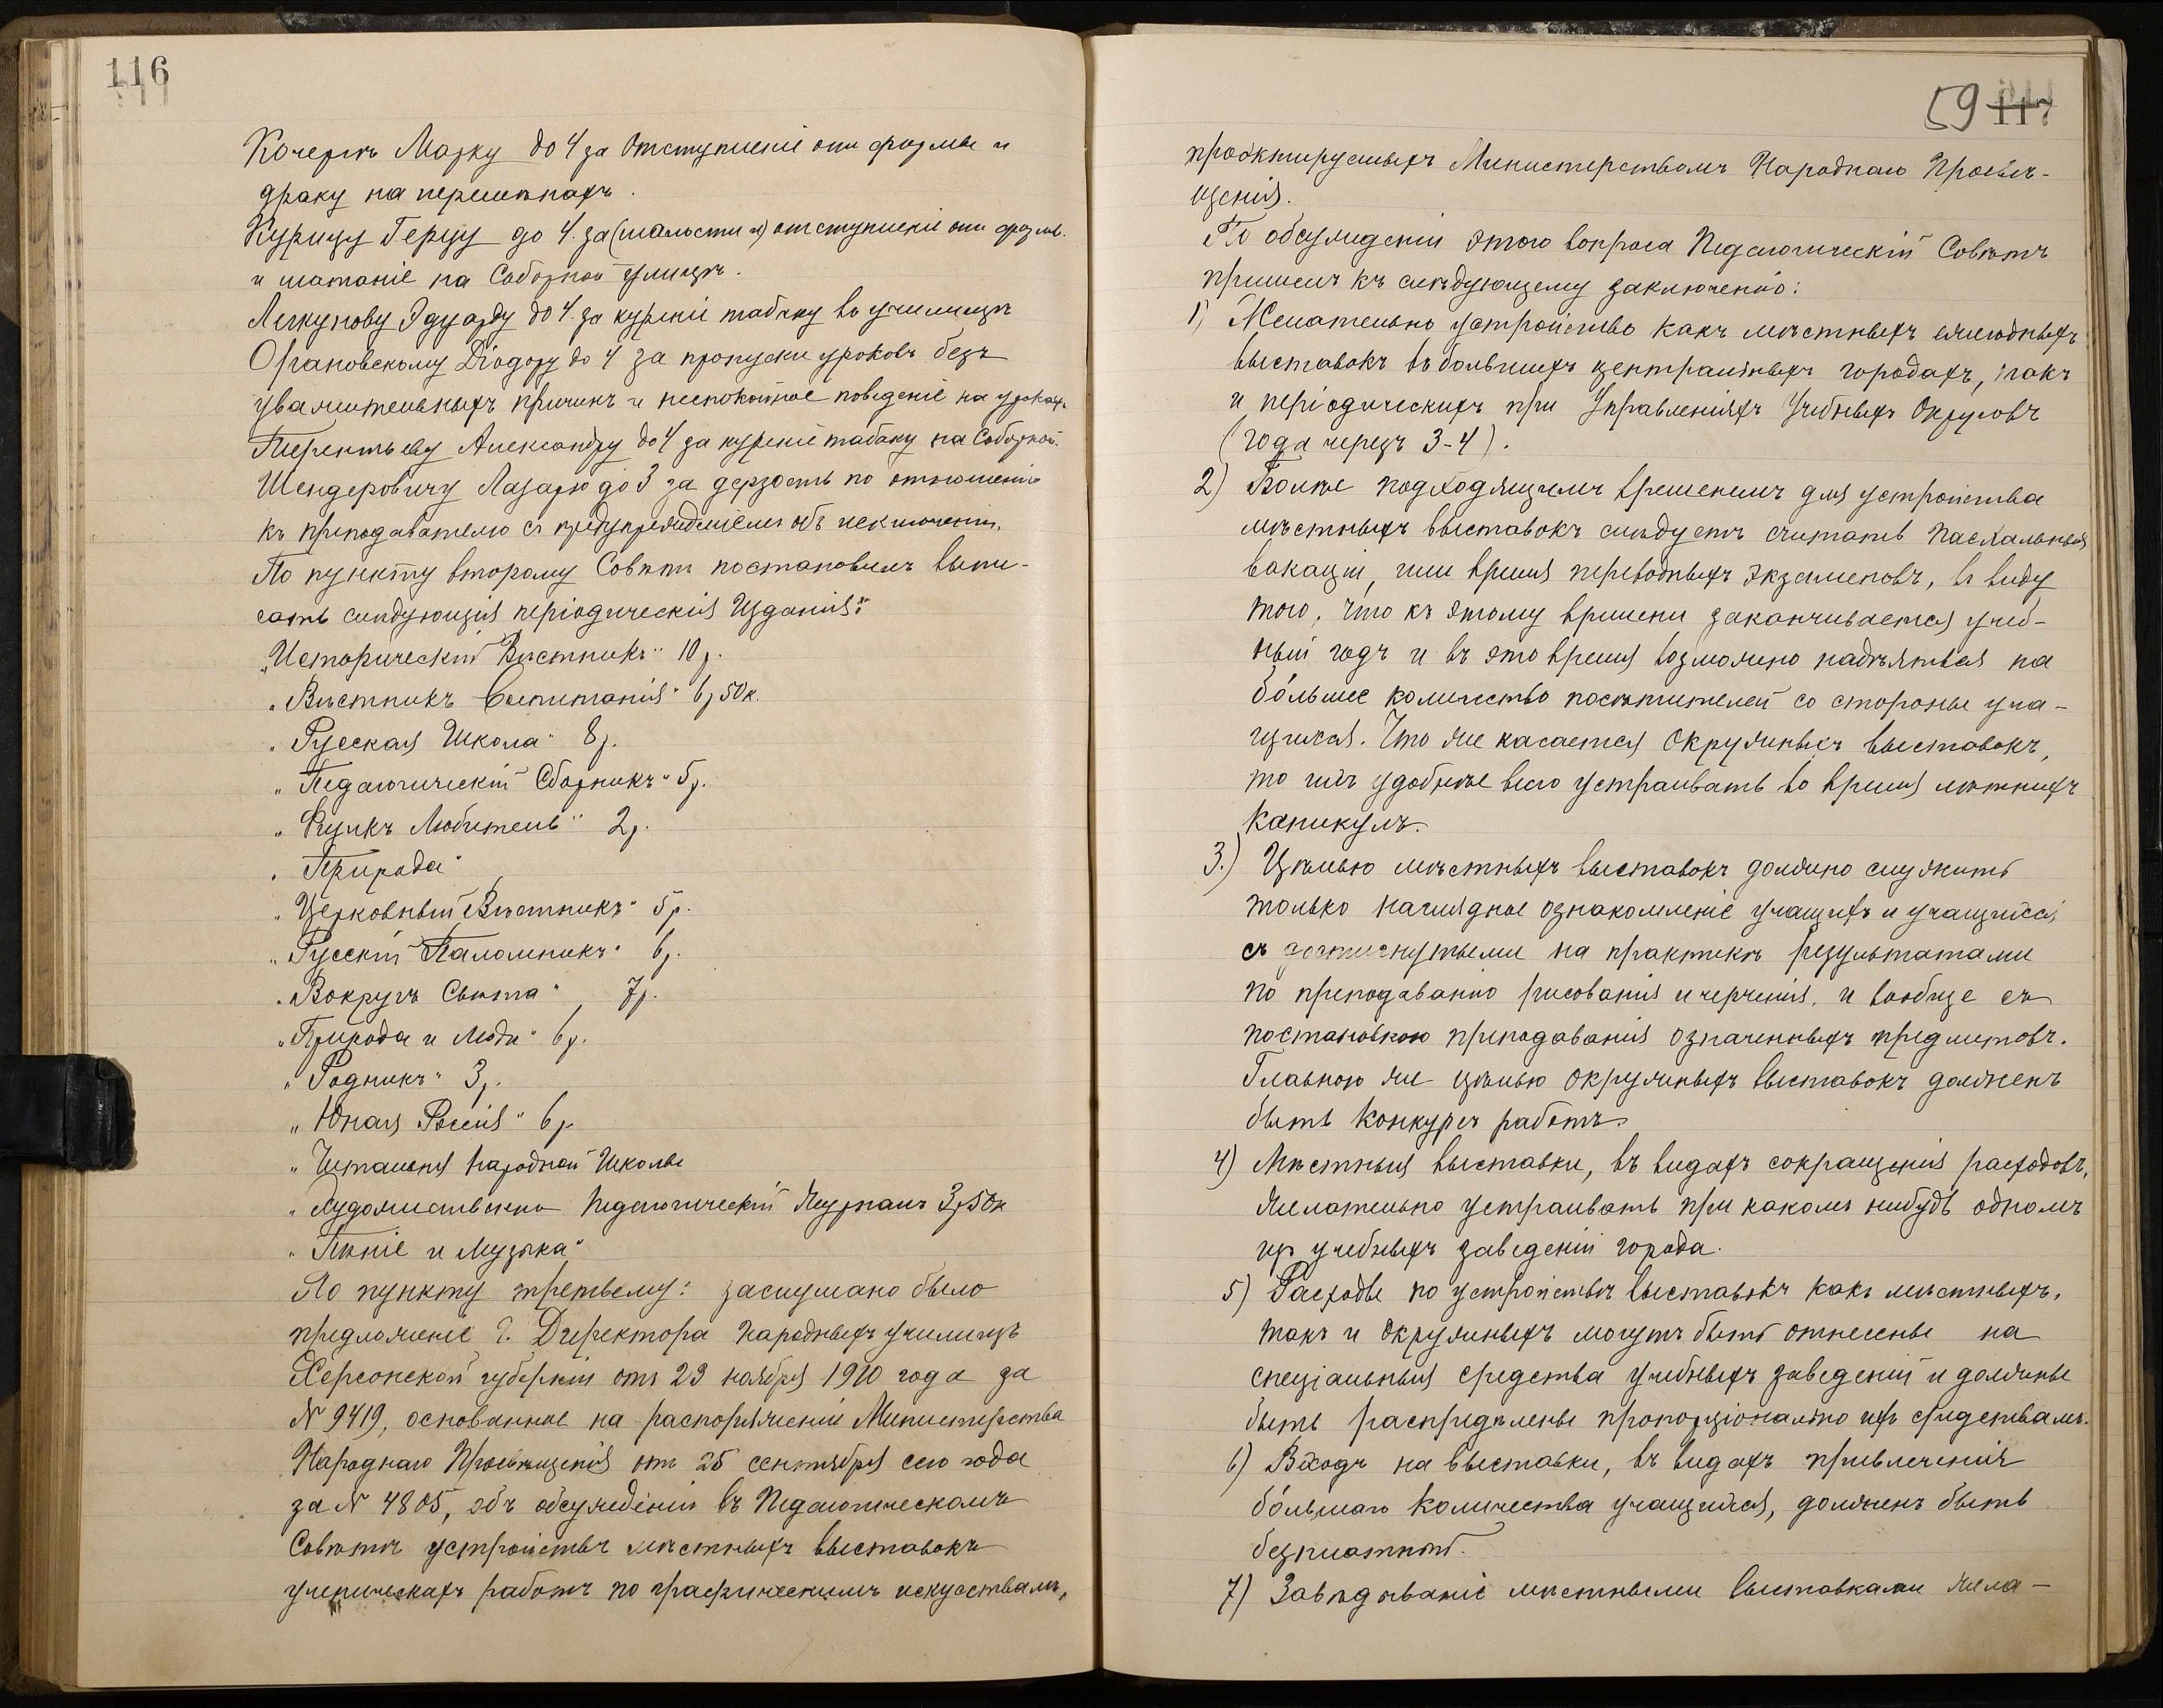 116
Кочергѣ Марку до 4 за отступленіе отъ формы и
драку на перемѣнахъ.
Курицу Герцу до 4. за (шалости и) отступленіе отъ формы.
и шатаніе на Соборной улицѣ.
Легкунову Эдуарду до 4. за куреніе табаку въ училищѣ
Органовскому Діодору до 4 за пропуски уроковъ безъ
уважительныхъ причинъ и неспокойное поведеніе на урокахъ.
Терентьеву Александру до 4 за куреніе табаку на Соборной.
Шендеровичу Лазарю до 3 за дерзость по отношенію
къ преподавателю съ предупрежденіемъ объ исключеніи.
По пункту второму Совѣтъ постановилъ выпи-
сать слѣдующія періодическія Изданія:
„Историческій Вѣстникъ" 10 р.
„Вѣстникъ Воспитанія" 6 р 50 к.
„Русская Школа" 8 р.
„Педагогическій Сборникъ" 5 р.
„Физикъ Любитель" 2 р.
„Природа"
„Церковный Вѣстникъ" 5 р.
„Русскій Паломникъ" 6 р.
„Вокругъ Свѣта" 7 р.
„Природа и Люди" 6 р.
„Родникъ" 3 р.
„Юная Россія" 6 р
„Читальня Народной Школы
„Художественно Педагогическій Журналъ 3 р 50 к
„Пѣніе и Музыка"
По пункту третьему: заслушано было
предложеніе Г. Директора народныхъ училищъ
Херсонской губерніи отъ 23 ноября 1910 года за
№ 9419, основанное на распоряженіи Министерства
Народнаго Просвѣщенія отъ 25 сентября сего года
за № 4805, объ обсужденіи въ Педагогическомъ
Совѣтѣ устройствъ мѣстныхъ выставокъ
ученическихъ работъ по графическимъ искусствамъ,
59 117
проэктируемыхъ Министерствомъ Народнаго Просвѣ-
щенія.
По обсужденіи этого вопроса Педагогическій Совѣтъ
пришелъ къ слѣдующему заключенію:
1) Желательно устройство какъ мѣстныхъ ежегодныхъ
выставокъ въ большихъ центральныхъ городахъ, такъ
и періодическихъ при Управленіяхъ Учебныхъ Округовъ
(года черезъ 3-4).
2) Болѣе подходящимъ временемъ для устройства
мѣстныхъ выставокъ слѣдуетъ считать Пасхальныя
вакаціи, или время переводныхъ экзаменовъ, въ виду
того, что къ этому времени заканчивается учеб-
ный годъ и въ это время возможно надѣяться на
бо́льшее количество посѣтителей со стороны уча-
щихся. Что же касается Окружныхъ выставокъ,
то ихъ удобнѣе всего устраивать во время лѣтнихъ
каникулъ.
3.) Цѣлью мѣстныхъ выставокъ должно служить
только наглядное ознакомленіе учащихъ и учащихся
съ достигнутыми на практикѣ результатами
по преподаванію рисованія и черченія, и вообще съ
постановкою преподаванія означенныхъ предметовъ.
Главною же цѣлью окружныхъ выставокъ долженъ
быть конкурсъ работъ.
4) Мѣстныя выставки, въ видахъ сокращенія расходовъ,
желательно устраивать при какомъ нибудь одномъ
изъ учебныхъ заведеній города.
5) Расходы по устройству выставокъ какъ мѣстныхъ,
такъ и окружныхъ могутъ быть отнесены на
спеціальныя средства учебныхъ заведеній и должны
быть распредѣлены пропорціонально ихъ средствамъ.
6) Входъ на выставки, въ видахъ привлеченія
бо́льшаго количества учащихся, долженъ быть
безплатный.
7) Завѣдываніе мѣстными выставками жела-